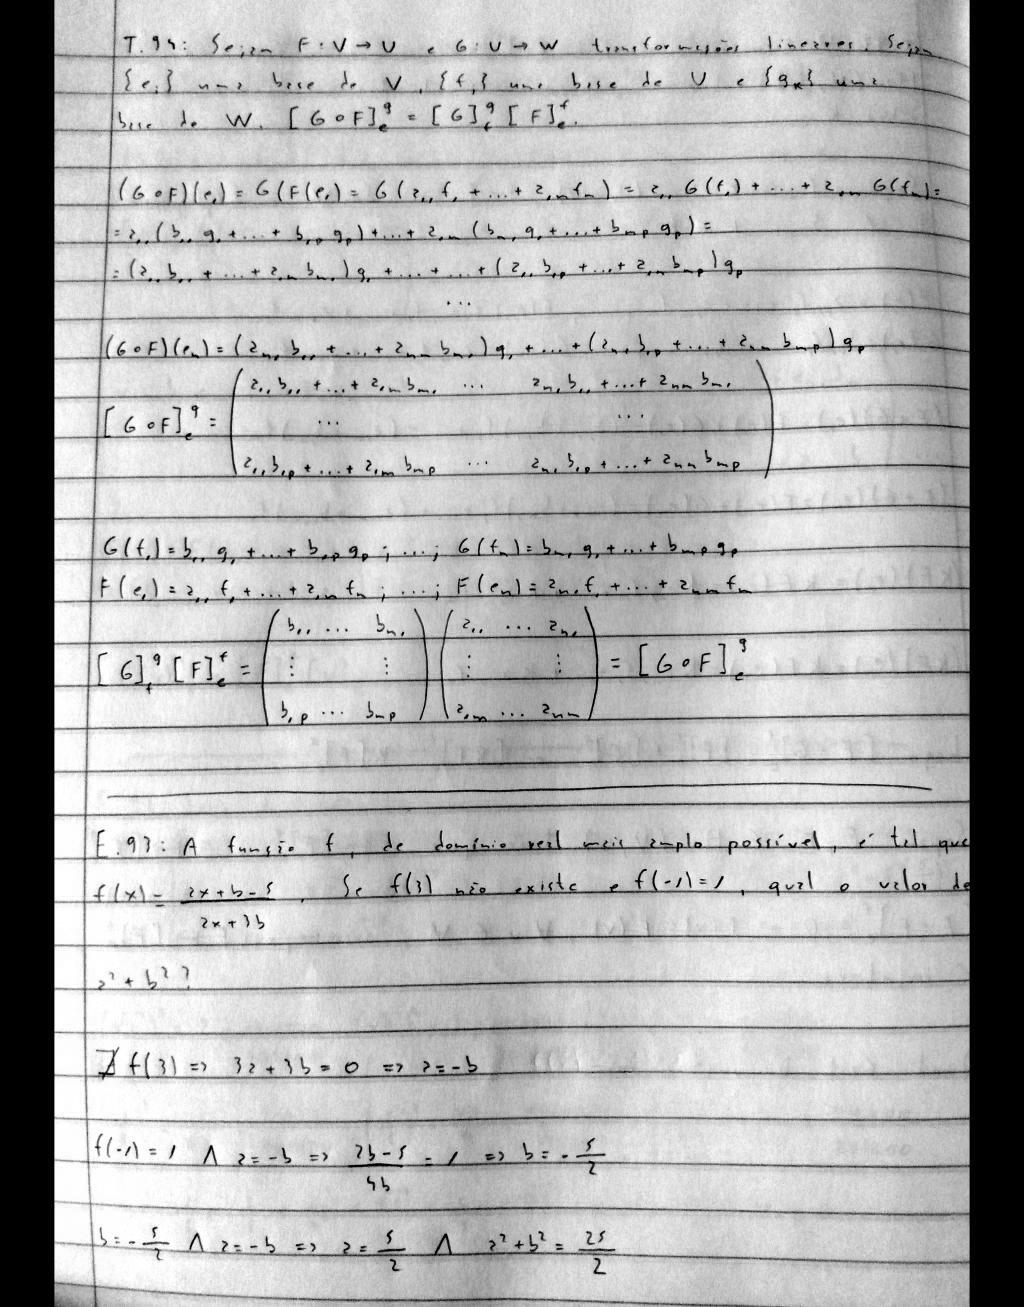 T.94: Sejam F:V→U e G:U→W transformações lineares. Sejam
{eᵢ} uma base de V, {fⱼ} uma base de U e {gₖ} uma
base de W. [G∘F]ₑᵍ = [G]_f^g [F]ₑ^f.
(G∘F)(e₁) = G(F(e₁) = G(a₁₁f₁ + ... + a₁ₘfₘ) = a₁₁G(f₁) + ... + a₁ₘG(fₘ) =
= a₁₁(b₁₁g₁ + ... + b₁ₚgₚ) + ... + a₁ₘ(bₘ₁g₁ + ... + bₘₚgₚ) =
= (a₁₁b₁₁ + ... + a₁ₘbₘ₁)g₁ + ... + ... + (a₁₁b₁ₚ + ... + a₁ₘbₘₚ)gₚ
...
(G∘F)(eₙ) = (aₙ₁b₁₁ + ... + aₙₘbₘ₁)g₁ + ... + (aₙ₁b₁ₚ + ... + aₙₘbₘₚ)gₚ
a₁₁b₁₁ + ... + a₁ₘbₘ₁ ... aₙ₁b₁₁ + ... + aₙₘbₘ₁
[G∘F]ₑᵍ = ... ...
a₁₁b₁ₚ + ... + a₁ₘbₘₚ ... aₙ₁b₁ₚ + ... + aₙₘbₘₚ
G(f₁) = b₁₁g₁ + ... + b₁ₚgₚ ; ... ; G(fₘ) = bₘ₁g₁ + ... + bₘₚgₚ
F(e₁) = a₁₁f₁ + ... + a₁ₘfₘ ; ... ; F(eₙ) = aₙ₁f₁ + ... + aₙₘfₘ
b₁₁ ... bₘ₁ a₁₁ ... aₙ₁
[G]_f^g [F]ₑ^f = ⋮ ⋮ ⋮ ⋮ = [G∘F]ₑᵍ
b₁ₚ ... bₘₚ a₁ₘ ... aₙₘ
E.93: A função f, de domínio real mais amplo possível, é tal que
f(x) = (ax+b-5)/(ax+3b). Se f(3) não existe e f(-1)=1, qual o valor de
a² + b²?
∄ f(3) => 3a+3b = 0 => a=-b
f(-1) = 1 ∧ a=-b => (2b-5)/(4b) = 1 => b = -5/2
b = -5/2 ∧ a=-b => a = 5/2 ∧ a²+b² = 25/2